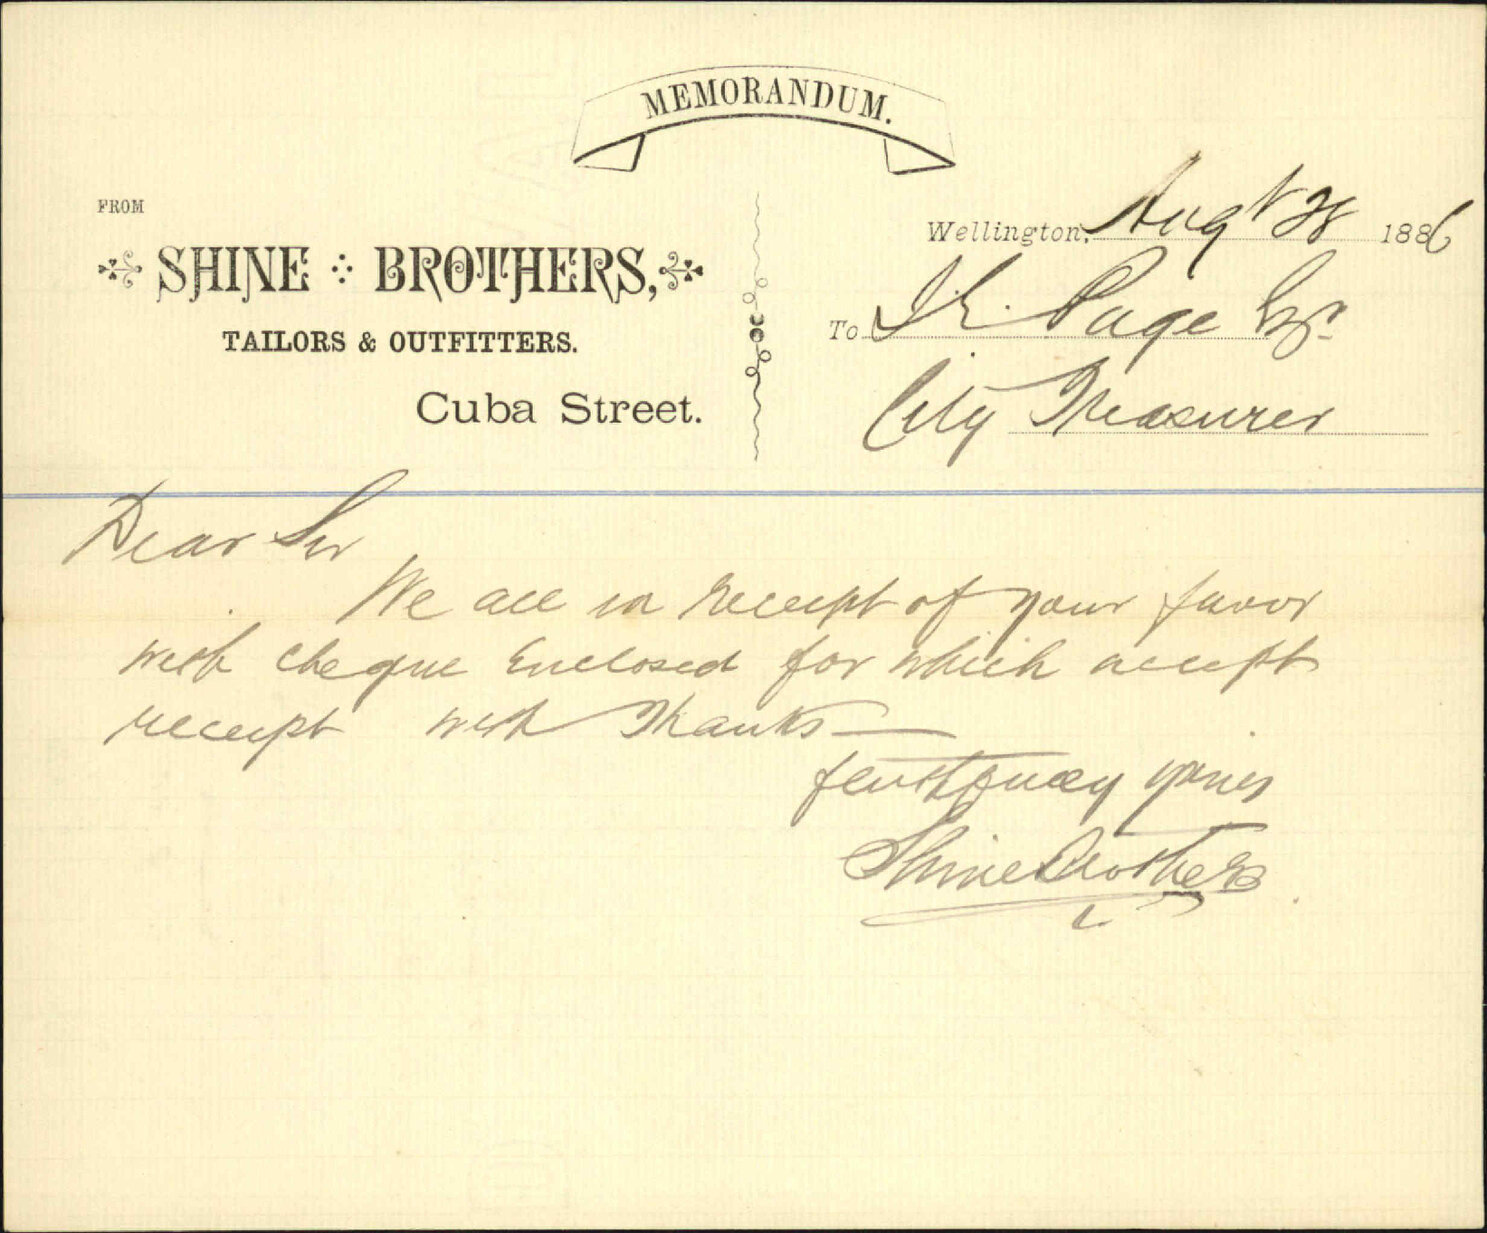 MEMORANDUM.
FROM
SHINE BROTHERS,
TAILORS & OUTFITTERS.
Cuba Street.
Wellington, Augt 28 1886
To J.E. Page Esqr
City Treasurer
Dear Sir
We are in receipt of your favor
with cheque Enclosed for which accept
receipt with Thanks —
faithfully yours
Shine Brothers